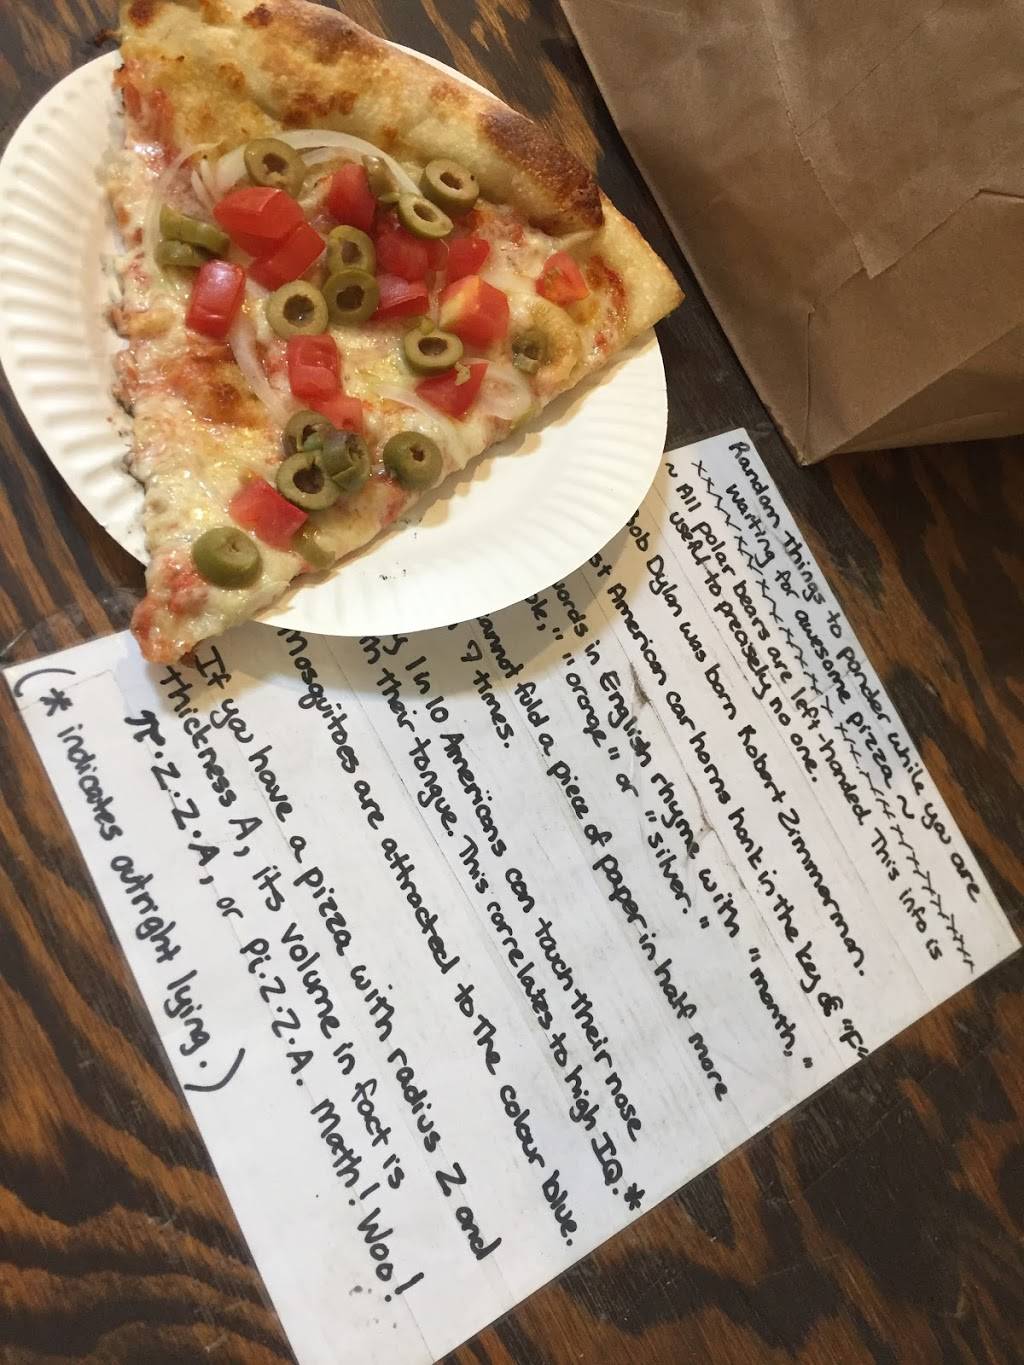 Random Things to ponder while you are
waiting for awesome pizza ~
xxxxxxxxxxxxxxxxxxxxxxxxxxxx
~ All polar bears are left-handed. This info is
useful to precisely no one.
Bob Dylan was born Robert Zimmerman.
American car horns honk in the key of "F"
words in English rhyme with "month,"
"orange" or "silver."
cannot fold a piece of paper in half more
7 times.
1 in 10 Americans can touch their nose
their tongue. This correlates to high IQ.*
Mosquitoes are attracted to the colour blue.
If you have a pizza with radius Z and
thickness A, its volume in fact is
π.Z.Z.A, or Pi.Z.Z.A. Math! Woo!
(* indicates outright lying.)